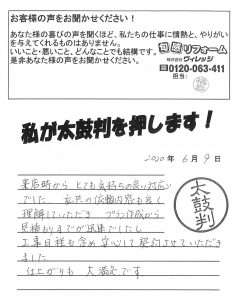 お客様の声をお聞かせください！
あなた様の喜びの声を聞くほど、私たちの仕事に情熱と、やりがい
を与えてくれるものはありません。
いいこと・悪いこと、どんなことでも結構です。
是非あなた様の声をお聞かせください。
旬感リフォーム
株式会社ヴィレッジ
0120-063-411
担当：
私が太鼓判を押します！
2020年 6月 9日
来店時から とても気持ちの良い対応
でした 私共の依頼内容も良く
理解していただき プラン作成から
見積りまでが迅速でしたし
工事日程も含め 安心して契約させていただき
ました
仕上がりも 大満足です
太鼓判